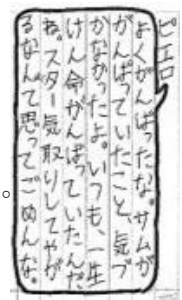 ピエロ
よくがんばったな。サムが
がんばっていたこと、気づ
かなかったよ。いつも、一生
けん命がんばっていたんだ
ね。スター気取りしてやが
るなんて思ってごめんな。